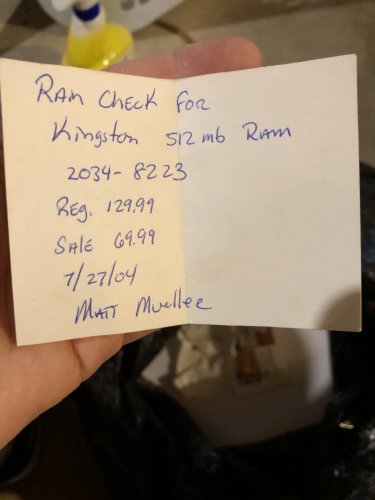 RAin Check For
Kingston 512 mb RAm
2034-8223
Reg. 129.99
SAle 69.99
7/27/04
MATT Mueller